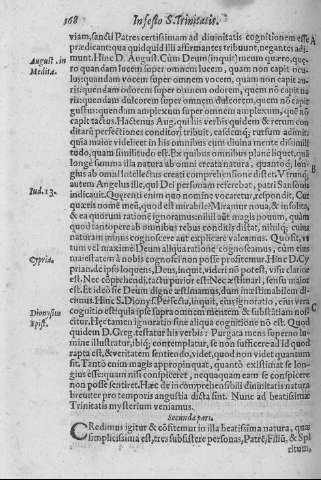 368 In festo S. Trinitatis.
viam, sancti Patres certissimam ad divinitatis cognitionem esse
prædicant: qua quidquid illi affirmantes tribuunt, negantes adi-
August. in
Medita.
munt. Hinc D. August. Cum Deum (inquit) meum quæro, quæ-
ro quandam lucem super omnem lucem, quam non capit ocu-
lus: quandam vocem super omnem vocem, quam non capit au-
ris: quendam odorem super omnem odorem, quem nō capit na-
ris: quendam dulcorem super omnem dulcorem, quem nō capit
gustus: quendam amplexum super omnem amplexum, quē nō
capit tactus. Hactenus Aug. qui his verbis quidem & rerum con-
ditarū perfectiones conditori tribuit, easdemq́; rursum adimit:
quia maior videlicet in his omnibus cum divina mente dissimili-
tudo, quam similitudo est. Ex quibus omnibus planè liquet, quā
longè summa illa natura ab omni creata natura, quantoq́; lon-
gius ab omni Intellectus creati comprehensione distet. Vtrunq́;
B
autem Angelus ille, qui Dei personam referebat, patri Sansonis
Iud. 13.
indicavit. Quærenti enim quo nomine vocaretur, respondit, Cur
quæris nomē meū, quod est mirabile? Miramur nova, & insolita,
& ea quorum rationē ignoramus: nihil aūt magis novum, quàm
quod tantopere ab omnibus rebus conditis distat, nihilq́; cuius
naturam minus cognoscere aut explicare valeamus. Quo fit, vt
tum vel maximè Deum aliqua ratione cognoscamus, cùm eius
Cypria.
maiestatem à nobis cognosci non posse profitemur. Hinc D. Cy-
prian. de ipso loquens, Deus, inquit, videri nō potest, visu clarior
est. Nec cōprehendi, tactu purior est: Nec æstimari, sensu maior
est. Et ideo sic Deum dignè æstimamus, dum inæstimabilem di-
Dionysius
Epist.
C
cimus. Hinc S. Dionys. Perfecta, inquit, eius ignoratio, eius vera
cognitio est: quia ipse supra omnem mentem & substātiam nos-
citur. Hęc tamen ignoratio sine aliqua cognitione nō est. Quod
quidem D. Greg. testatur his verbis: Purgata mens superno lu-
mine illustratur, ibiq́; contemplatur, se non sufficere ad id quod
rapta est, & veritatem sentiendo, videt, quod non videt quantum
sit. Tanto enim magis appropinquat, quantò existimat se lon-
gius esse: quam nisi conspiceret, nequaquam eam se conspicere
non posse sentiret. Hæc de incomprehensibili divinitatis natura
breuiter pro temporis angustia dicta sint. Nunc ad beatissimæ
Trinitatis mysterium veniamus.
Secunda pars.
CRedimus igitur & cōfitemur in illa beatissima natura, quæ
simplicissima est, tres subsistere personas, Patrē, Filiū, & Spi-
ritum,